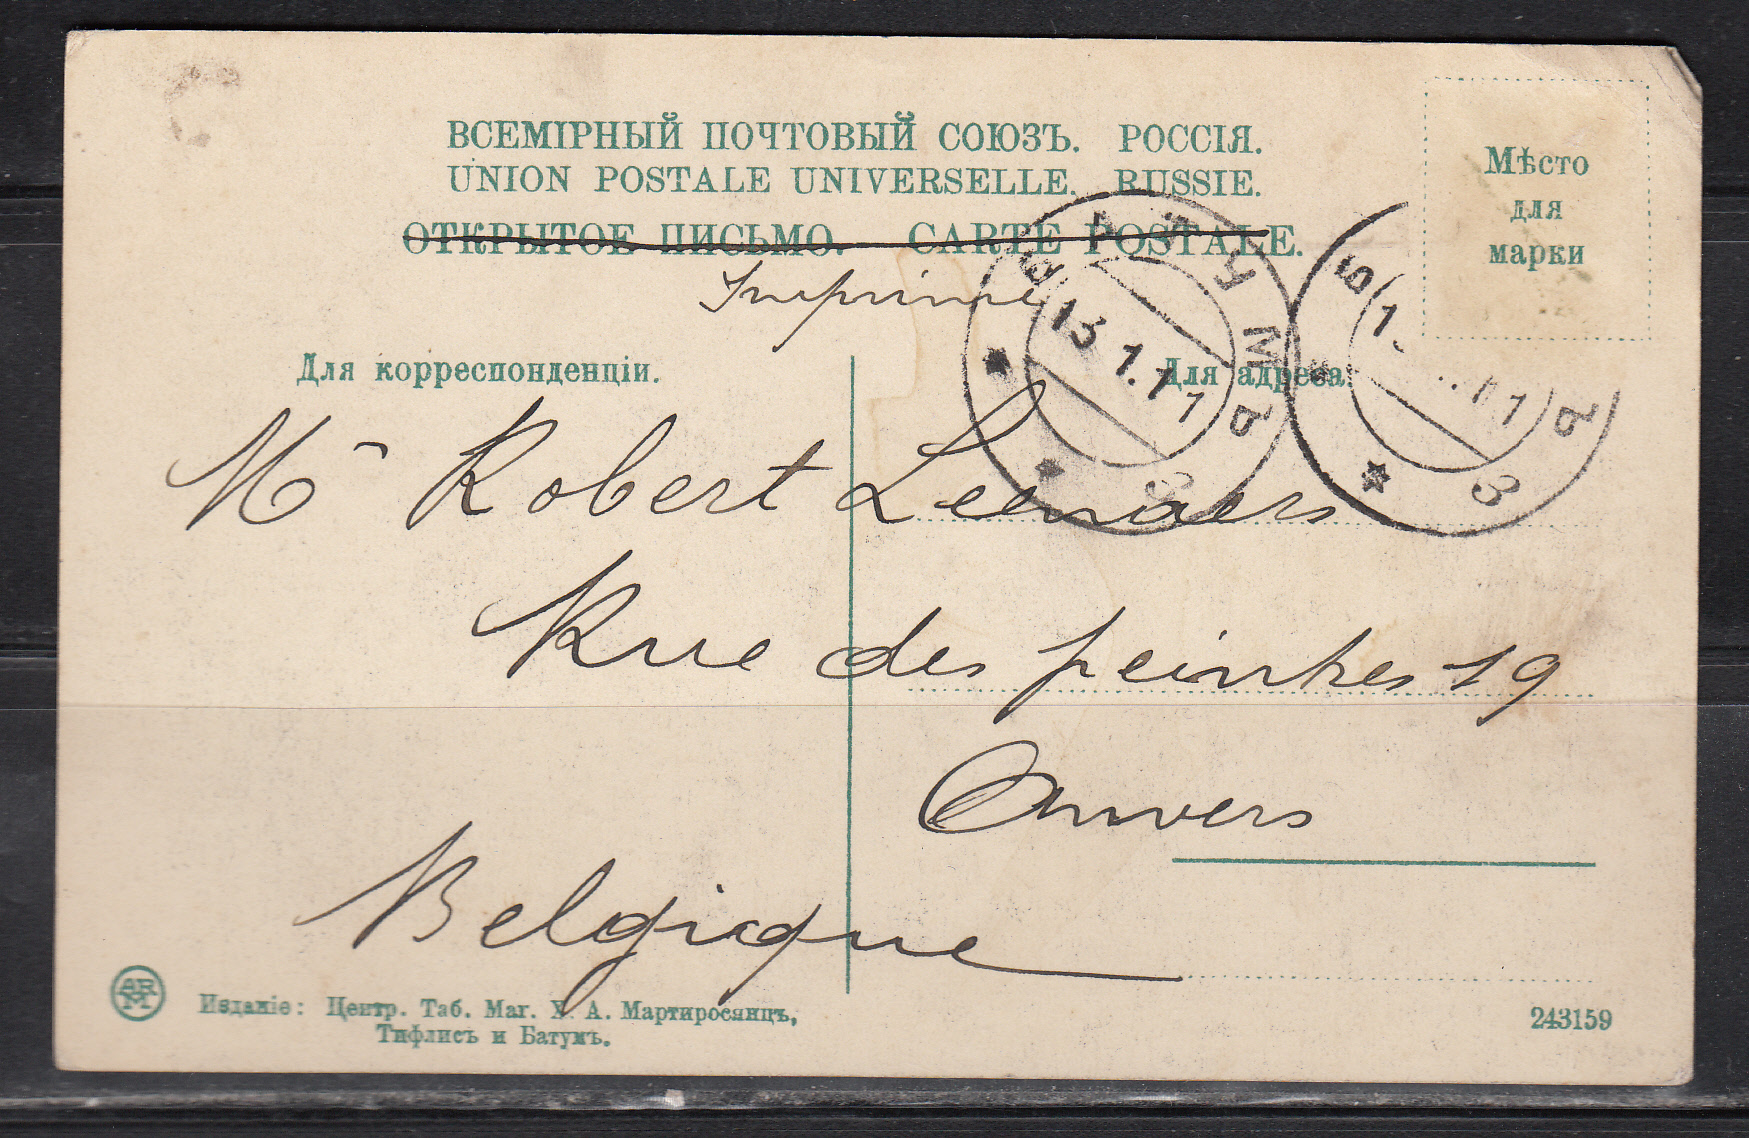 ВСЕМІРНЫЙ ПОЧТОВЫЙ СОЮЗЪ. РОССІЯ.
UNION POSTALE UNIVERSELLE. RUSSIE.
ОТКРЫТОЕ ПИСЬМО. CARTE POSTALE.
Мѣсто
для
марки
Imprimé
БАТУМЪ
13.1.11
3
Б Ъ
1 11
3
Для корреспонденціи.
Для адреса
Mr Robert Leenaers
Rue des peintres 19
Anvers
Belgique
ARM
Изданіе: Центр. Таб. Маг. Х. А. Мартиросянцъ,
Тифлисъ и Батумъ.
243159